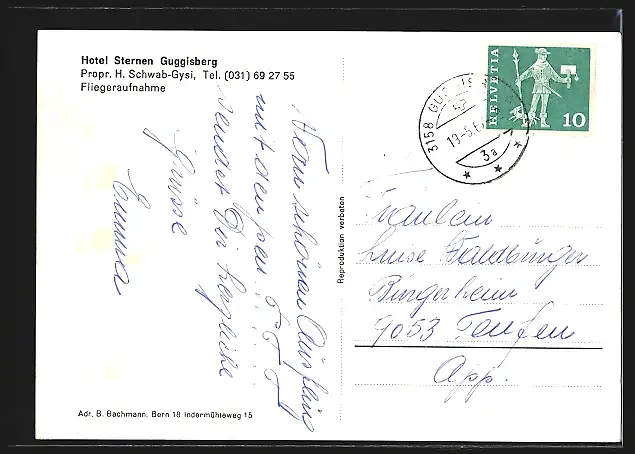 Hotel Sternen Guggisberg
Propr. H. Schwab-Gysi, Tel. (031) 69 27 55
Fliegeraufnahme
Vom schönen Ausflug
mit den
sendet Dir herzliche
Grüsse
Emma
Adr. B. Bachmann, Bern 18 Indermühleweg 15
Reproduktion verboten
HELVETIA
10
3158
3a
Fräulein
Luise Waldburger
Bürgerheim
9053 Teufen
App.